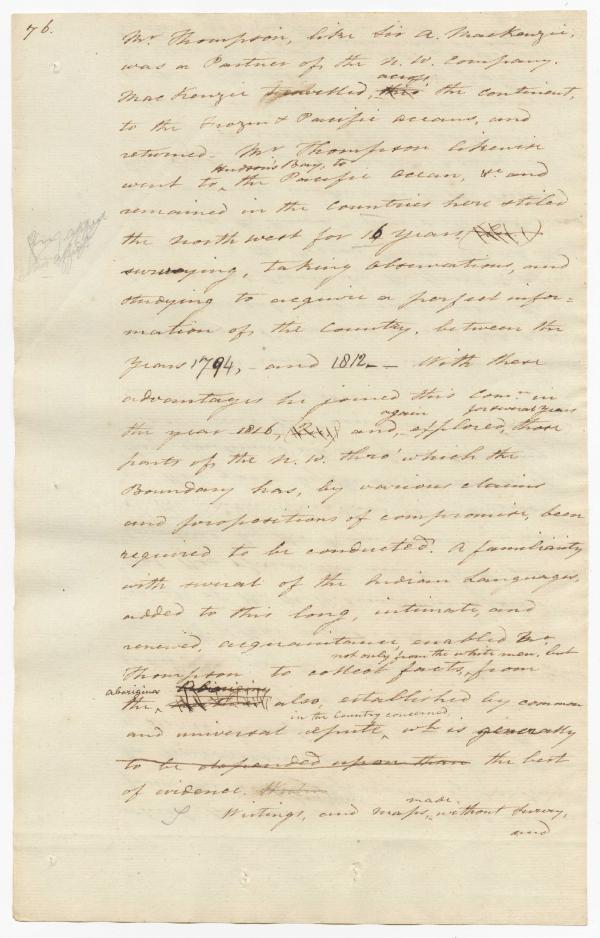 76.
Mr. Thompson, like Sir A. MacKenzie,
was a Partner of the N. W. Company.
MacKenzie travelled, across the continent,
to the Frozen & Pacific oceans, and
returned. Mr Thompson likewise
Hudsons Bay, to
went to the Pacific Ocean, &c and
remained in the Countries here stiled
the north west for 16 years
surveying, taking observations, and
studying to acquire a perfect infor=
mation of the Country, between the
years 1794, - and 1812. - With these
advantages he joined this Comn. in
again for several years
the year 1816, and, explored, those
parts of the N. W. thro' which the
Boundary has, by various claims
and propositions of compromise, been
required to be conducted. A familiarity
with several of the Indian Languages,
added to this long, intimate, and
renewed, acquaintance, enabled Mr
not only from the white men, but
Thompson to collect facts, from
aborigines
the also, established by common
in the Country concerned
and universal repute, wh. is generally
to be depended upon than the best
of evidence.
made
Writings, and maps, without Survey,
and